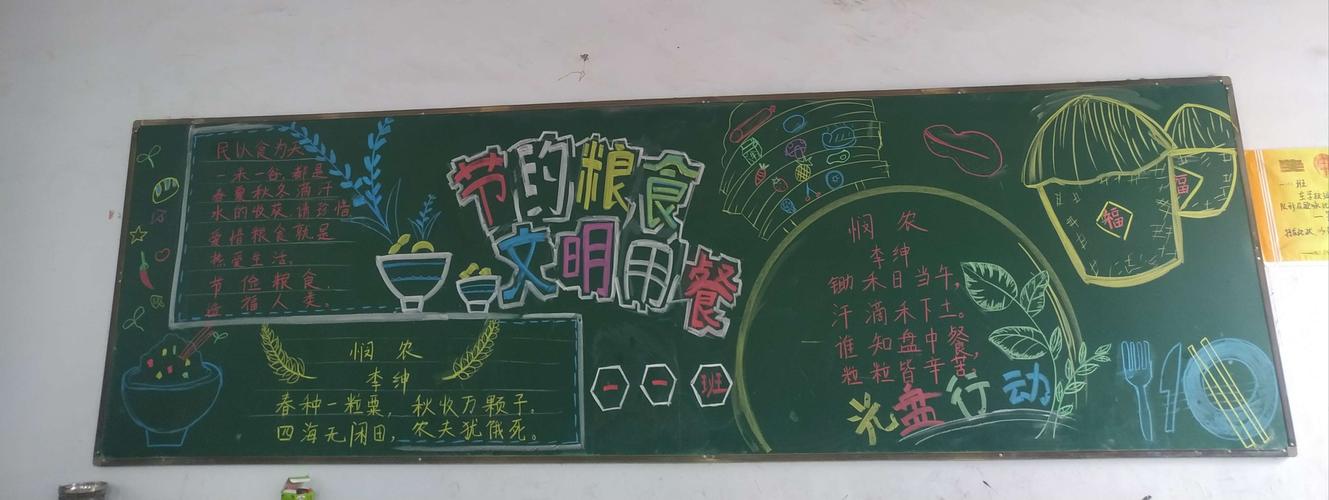 民以食为天
一米一谷,都是
春夏秋冬滴汗
水的收获,请珍惜
爱惜粮食就是
热爱生活。
节俭粮食,
造福人类。
悯农
李绅
春种一粒粟,秋收万颗子。
四海无闲田,农夫犹饿死。
节的粮食
文明用餐
一一班
悯农
李绅
锄禾日当午,
汗滴禾下土。
谁知盘中餐,
粒粒皆辛苦。
光盘行动
福
福